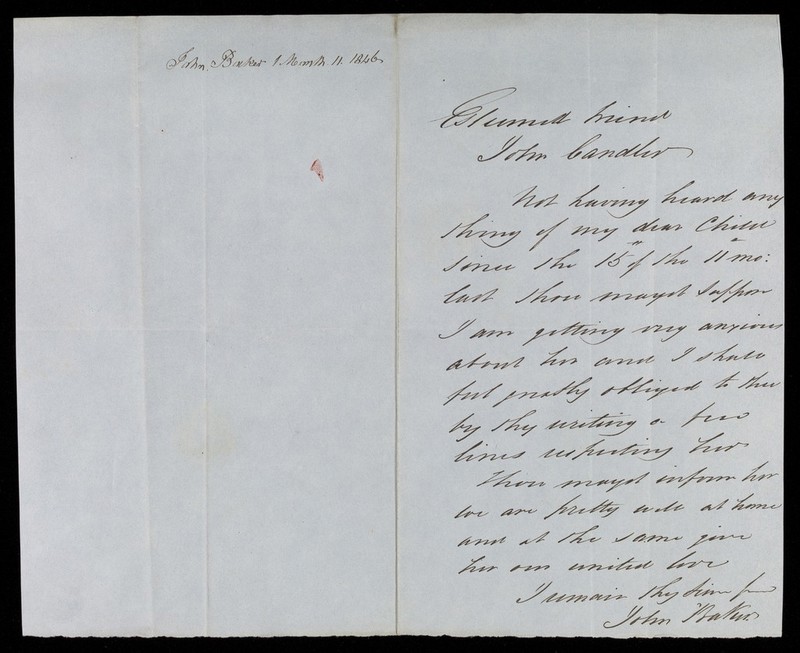 John Baker 1 Month 11. 1846
Esteemed friend
John Candler
Not having heard any
thing of my dear Child
since the 15" of the 11" mo:
last thou mayst suppose
I am getting very anxious
about her and I should
feel greatly obliged to thee
by thy writing a few
lines respecting her
thou mayst inform her
we are pretty well at home
and at the same give
her our united love
I remain thy sin fr
John Baker